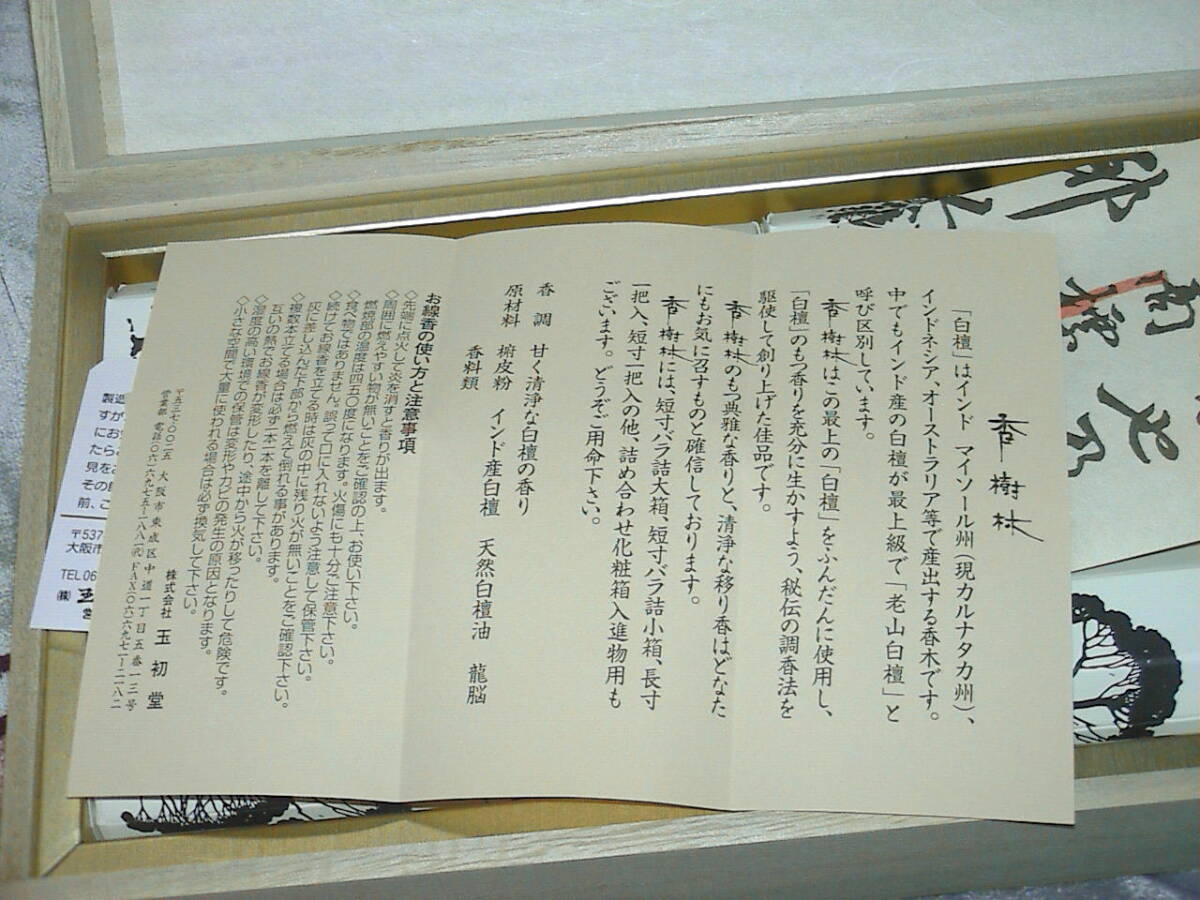 香樹林
「白檀」はインド マイソール州(現カルナタカ州)、
インドネシア、オーストラリア等で産出する香木です。
中でもインド産の白檀が最上級で「老山白檀」と
呼び区別しています。
香樹林はこの最上の「白檀」をふんだんに使用し、
「白檀」のもつ香りを充分に生かすよう、秘伝の調香法を
駆使して創り上げた佳品です。
香樹林のもつ典雅な香りと、清浄な移り香はどなた
にもお気に召すものと確信しております。
香樹林には、短寸バラ詰大箱、短寸バラ詰小箱、長寸
一把入、短寸一把入の他、詰め合わせ化粧箱入進物用も
ございます。どうぞご用命下さい。
香調 甘く清浄な白檀の香り
原材料 椨皮粉 インド産白檀 天然白檀油 龍脳
香料類
お線香の使い方と注意事項
◇先端に点火して炎を消すと香りが出ます。
◇周囲に燃えやすい物が無いことをご確認の上、お使い下さい。
燃焼部の温度は四五〇度になります。火傷にも十分ご注意下さい。
◇食べ物ではありません。誤って口に入れないよう注意して保管下さい。
◇続けてお線香を立てる時は灰の中に残り火が無いことをご確認下さい。
灰に差し込んだ下部から燃えて倒れる事があります。
◇複数本立てる場合は必ず一本一本を離して下さい。
互いの熱でお線香が変形したり、途中から火が移ったりして危険です。
◇湿度の高い環境での保管は変形やカビの発生の原因となります。
◇小さな空間で大量に使われる場合は必ず換気して下さい。
株式会社 玉初堂
〒五三七-〇〇二五 大阪市東成区中道一丁目五番一三号
営業部 電話〇六-六九七五-一八八一(代) FAX〇六-六九七一-二一八二
製造
すが
にお
たら
見を
その
前、ご
〒537
大阪市
TEL 06
㈱ 玉
営